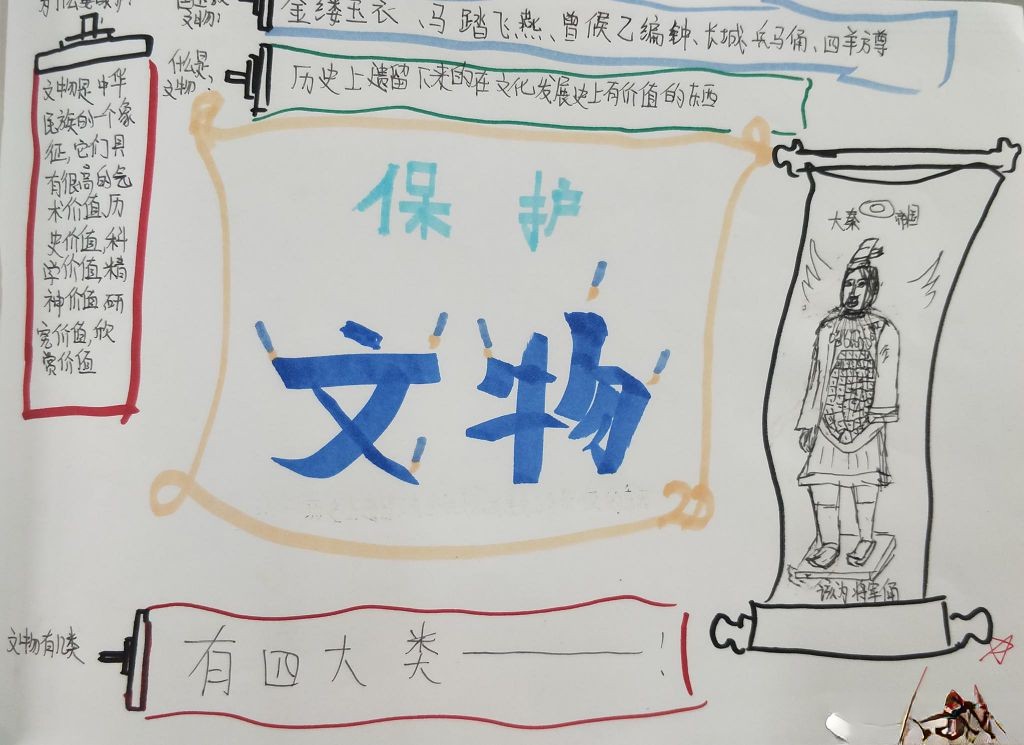 文物:
金缕玉衣、马踏飞燕、曾候乙编钟、长城、兵马俑、四羊方尊
什么是
文物:
历史上遗留下来的在文化发展史上有价值的东西
文物是中华
民族的一个象
征,它们具
有很高的艺
术价值,历
史价值,科
学价值,精
神价值,研
究价值,欣
赏价值
保护
文物
大秦帝国
该为将军俑
文物有几类
有四大类——!